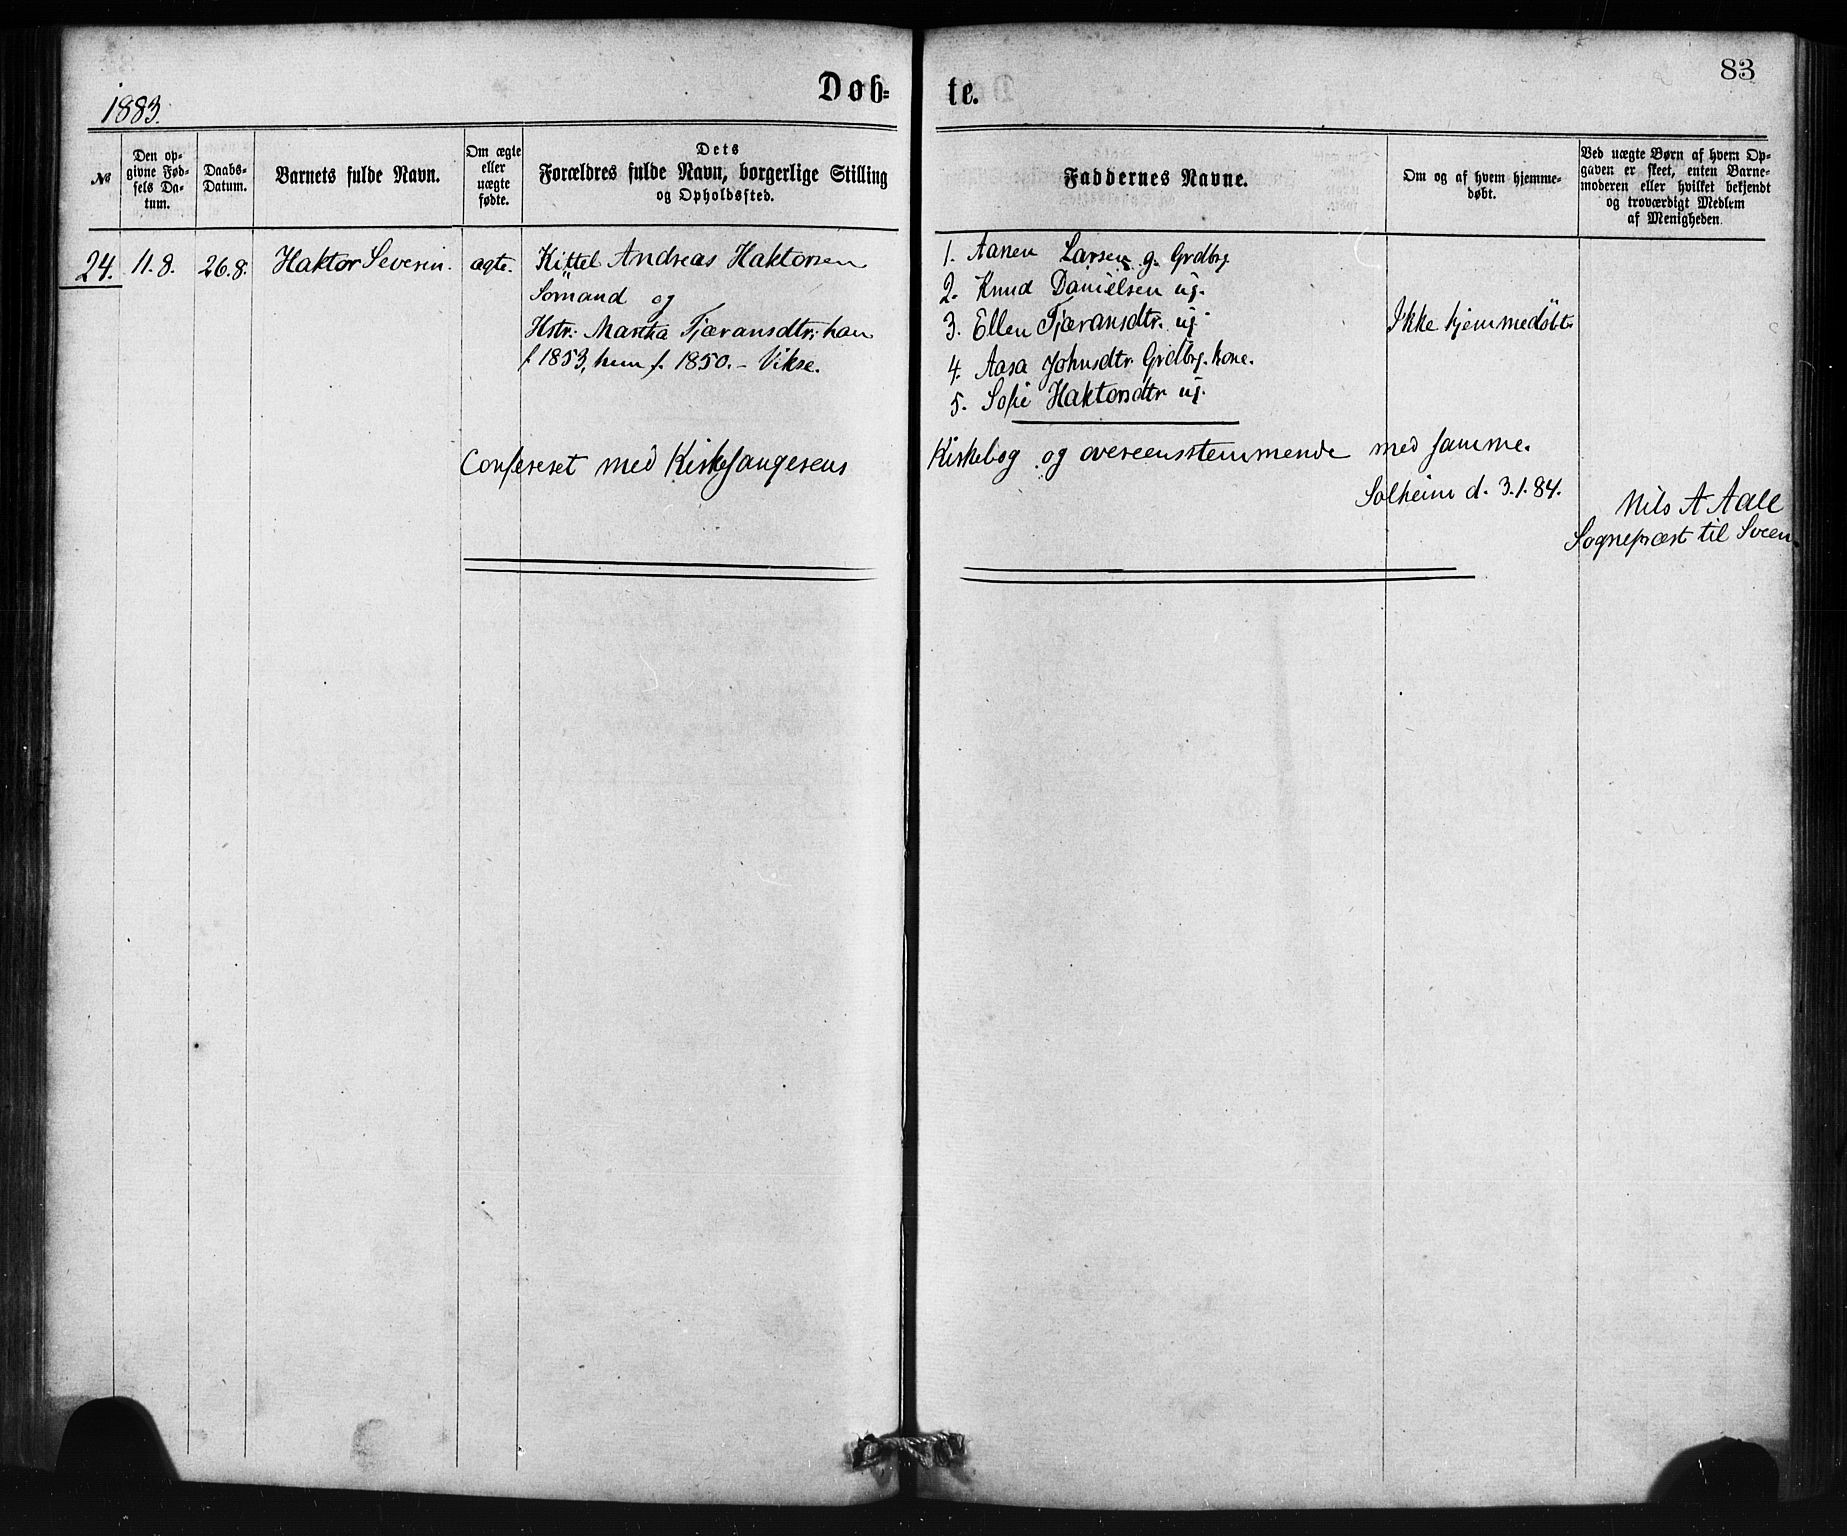 83
Døb-
te.
1883.
№
Den op-
givne Fød-
sels Da-
tum.
Daabs-
Datum.
Barnets fulde Navn.
Om ægte
eller
uægte
fødte.
Dets
Forældres fulde Navn, borgerlige Stilling
og Opholdssted.
Faddernes Navne.
Om og af hvem hjemme-
døbt.
Ved uægte Børn af hvem Op-
gaven er skeet, enten Barne-
moderen eller hvilket bekjendt
og troværdigt Medlem
af Menigheden.
24. 11.8. 26.8. Haktor Severin. ægte. Kittel Andreas Haktorsen
Sømand og
Hstr: Martha Tjæransdtr: han
f 1853, hun f. 1850. - Vikse.
1. Aanen Larsen g. Grdbrg
2. Knud Danielsen ug.
3. Ellen Tjæransdtr. ug.
4. Aasa Johnsdtr. Grdbrg. kone.
5. Sofie Haktorsdtr ug.
Ikke hjemmedøbt
Confereret med Kirkesangerens Kirkebog og overeensstemmende med samme.
Solheim d. 3.1.84.
Nils A Aall
Sognepræst til Sveen.